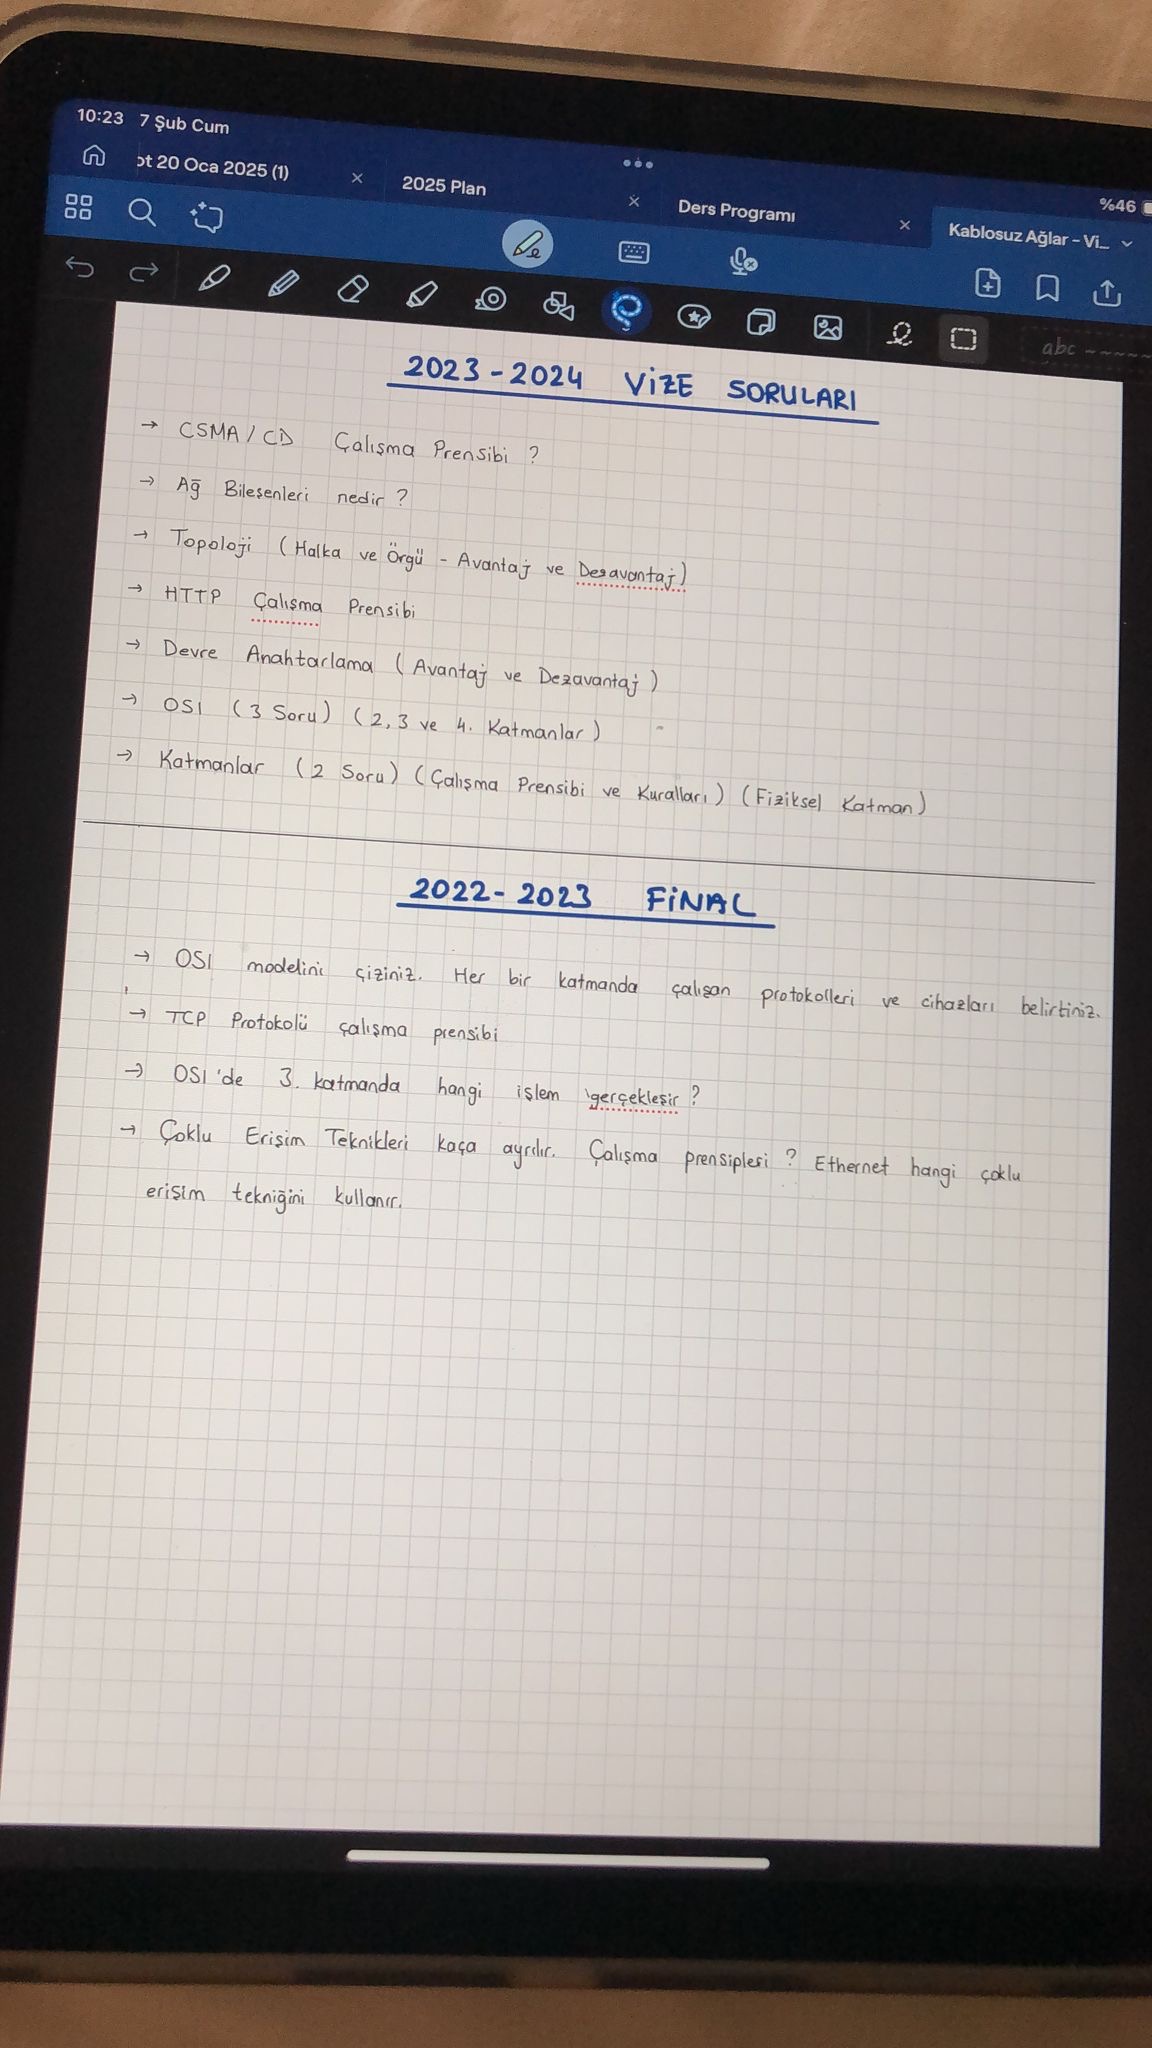 10:23 7 Şub Cum
%46
ot 20 Oca 2025 (1)
2025 Plan
Ders Programı
Kablosuz Ağlar - Vi...
abc
2023-2024 VİZE SORULARI
→ CSMA/CD Çalışma Prensibi ?
→ Ağ Bileşenleri nedir ?
→ Topoloji (Halka ve Örgü - Avantaj ve Desavantaj)
→ HTTP Çalışma Prensibi
→ Devre Anahtarlama (Avantaj ve Dezavantaj)
→ OSI (3 Soru) (2, 3 ve 4. Katmanlar)
→ Katmanlar (2 Soru) (Çalışma Prensibi ve Kuralları) (Fiziksel Katman)
2022-2023 FİNAL
→ OSI modelini çiziniz. Her bir katmanda çalışan protokolleri ve cihazları belirtiniz.
→ TCP Protokolü çalışma prensibi
→ OSI'de 3. katmanda hangi işlem gerçekleşir ?
→ Çoklu Erişim Teknikleri kaça ayrılır. Çalışma prensiplesi ? Ethernet hangi çoklu
erişim tekniğini kullanır.